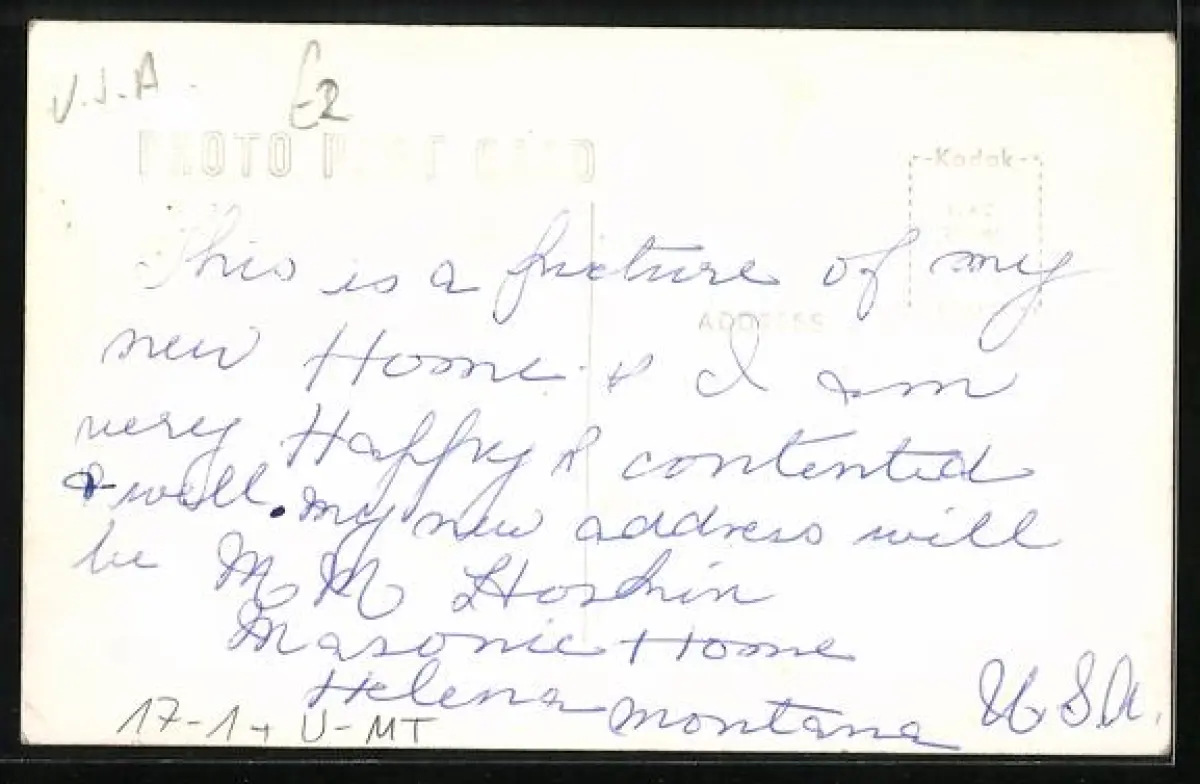 U.S.A.
E2
PHOTO POST CARD
Kodak
This is a picture of my
ADDRESS
new Home & I am
very Happy & contented
& well. my new address will
be M M
Masonic Home
Helena montana U S A.
17-1 U-MT